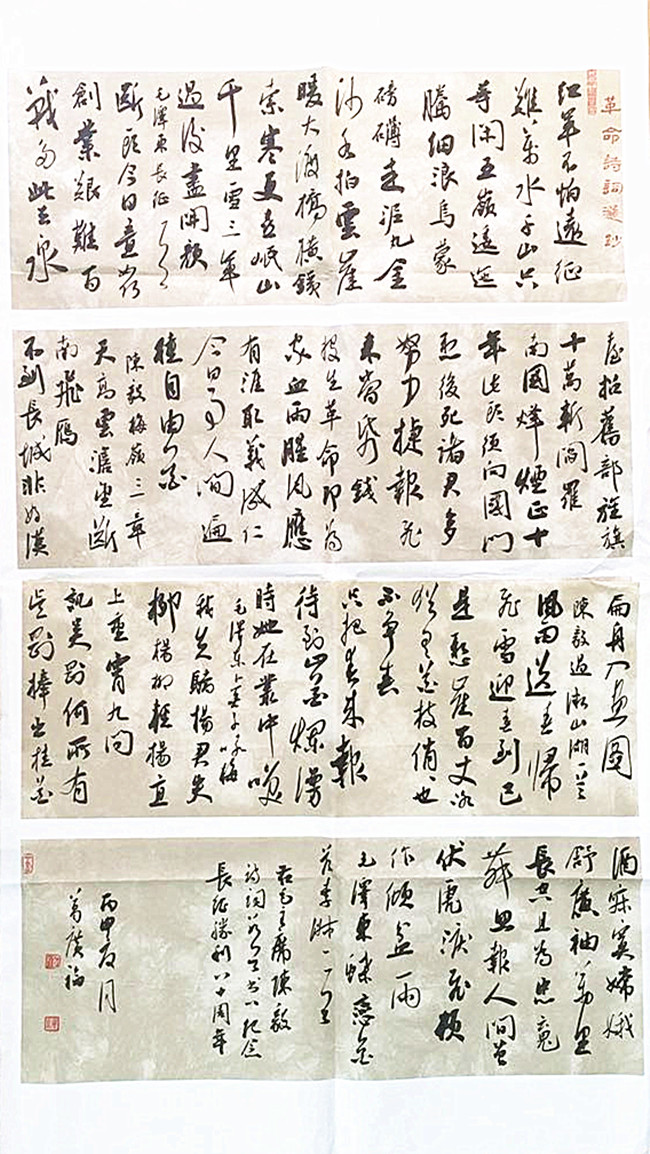 革命詩詞選抄
红軍不怕遠征
難萬水千山只
等闲五嶺逶迤
騰细浪烏蒙
磅礴走泥丸金
沙水拍雲崖
暖大渡橋横鐵
索寒更喜岷山
千里雪三軍
過後盡開顔
毛澤東長征一首
断頭今日意若
創業艱難百
戰多此去泉
臺招舊部旌旗
十萬斬閻羅
南國烽煙正十
年此頭須向國門
懸後死諸君多
努力捷報飛
來當紙錢
投生革命即為
家血雨腥風應
有涯取義成仁
今日事人間遍
種自由花
陳毅梅嶺三章
天高雲淡望斷
南飛雁
不到長城非好漢
扁舟入画圖
陳毅過微山湖一首
風雨送春歸
飛雪迎春到已
是懸崖百丈冰
猶有花枝俏俏也
不争春
只把春來報
待到山花爛漫
時她在叢中笑
毛澤東卜算子咏梅
我失驕楊君失
柳楊柳輕揚直
上重霄九問
訊吴剛何所有
吴剛捧出桂花
酒寂寞嫦娥
舒廣袖萬里
長空且為忠魂
舞忽報人間曾
伏虎淚飛頓
作傾盆雨
毛澤東蝶戀花
答李淑一一首
右毛主席陳毅
詩詞若干首以紀念
長征勝利八十周年
丙申夏月
廣福